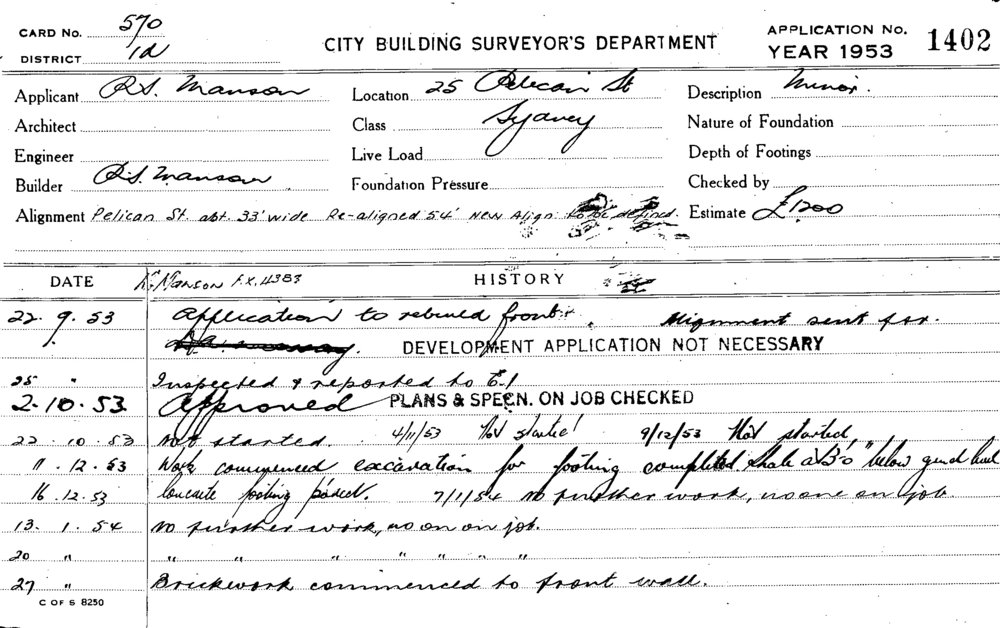 CARD No. 570
DISTRICT 1d
CITY BUILDING SURVEYOR'S DEPARTMENT
APPLICATION No. 1402
YEAR 1953
Applicant R.S. Manson Location 25 Pelican St Description Minor.
Architect Class Sydney Nature of Foundation
Engineer Live Load Depth of Footings
Builder R.S. Manson Foundation Pressure Checked by
Alignment Pelican St. abt. 33' wide Re-aligned 54' New Align. to be defined. Estimate £1200
DATE R. Manson F.X. 4383 HISTORY
22. 9. 53 Application to rebuild front. Alignment sent for.
DEVELOPMENT APPLICATION NOT NECESSARY
25 " Inspected & reported to E.1
2.10.53 Approved PLANS & SPECN. ON JOB CHECKED
22.10.53 Not started. 4/11/53 Not started 9/12/53 Not started,
11.12.53 Work commenced excavation for footing completed shale at 3'-0" below gnd level
16.12.53 Concrete footing poured. 7/1/54 No further work, no one on job.
13. 1. 54 No further work, no on on job.
20 " " " " " " " "
27 " Brickwork commenced to front wall.
C OF S 8250